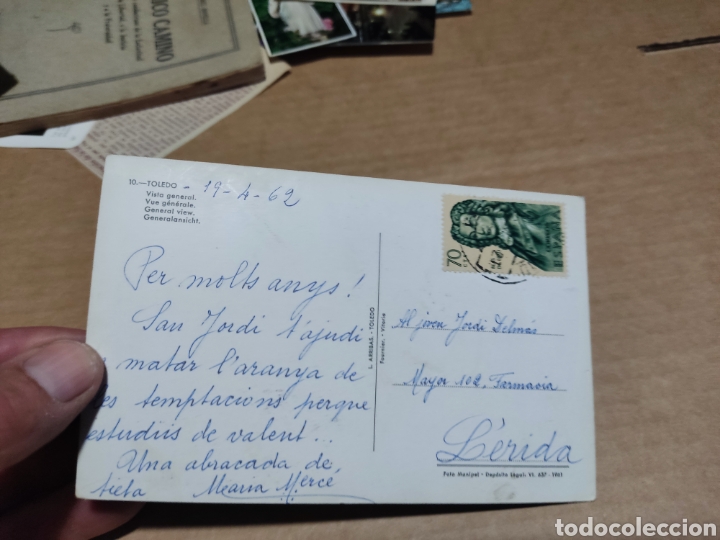 OCO CAMINO
10.—TOLEDO - 19-4-62
Vista general.
Vue générale.
General view.
Generalansicht.
Per molts anys!
San Jordi t'ajudi
a matar l'aranya de
les temptacions perque
estudiis de valent...
Una abracada de
tieta Maria Mercé
L. ARRIBAS. - TOLEDO
Fournier. - Vitoria
70
Al joven Jordi Delmás
Mayor 102, Farmacia
Lérida
Foto Manipel - Depósito Legal: VI. 657 - 1961
todocoleccion
todocoleccion.net